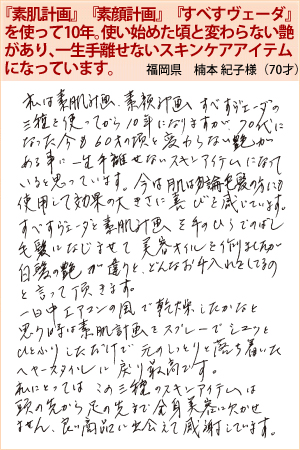 『素肌計画』『素顔計画』『すべすヴェーダ』
を使って10年。使い始めた頃と変わらない艶
があり、一生手離せないスキンケアアイテム
になっています。
福岡県 楠本 紀子様（70才）
私は素肌計画、素顔計画、すべすヴェーダの
三種を使ってから10年になりますが、70代に
なった今も60才の頃と変わらない艶が
ある事に一生手離せないスキンアイテムになって
いると思っています。今は肌は勿論毛髪の方にも
使用して効果の大きさに喜びを感じています。
すべすヴェーダと素肌計画を手のひらでのばし
毛髪になじませて美容オイルを作りましたが
白髪の艶が違うと、どんなお手入れをしてるの
と言って頂きます。
一日中エアコンの風で乾燥したかなと
思う時は素肌計画をスプレーでシュッと
ひとふりしただけで元のしっとりと落ち着いた
ヘヤースタイルに戻り最高です。
私にとってはこの三種のスキンアイテムは
頭の先から足の先まで全身美容に欠かせ
ません、良い商品に出会えて感謝しています。